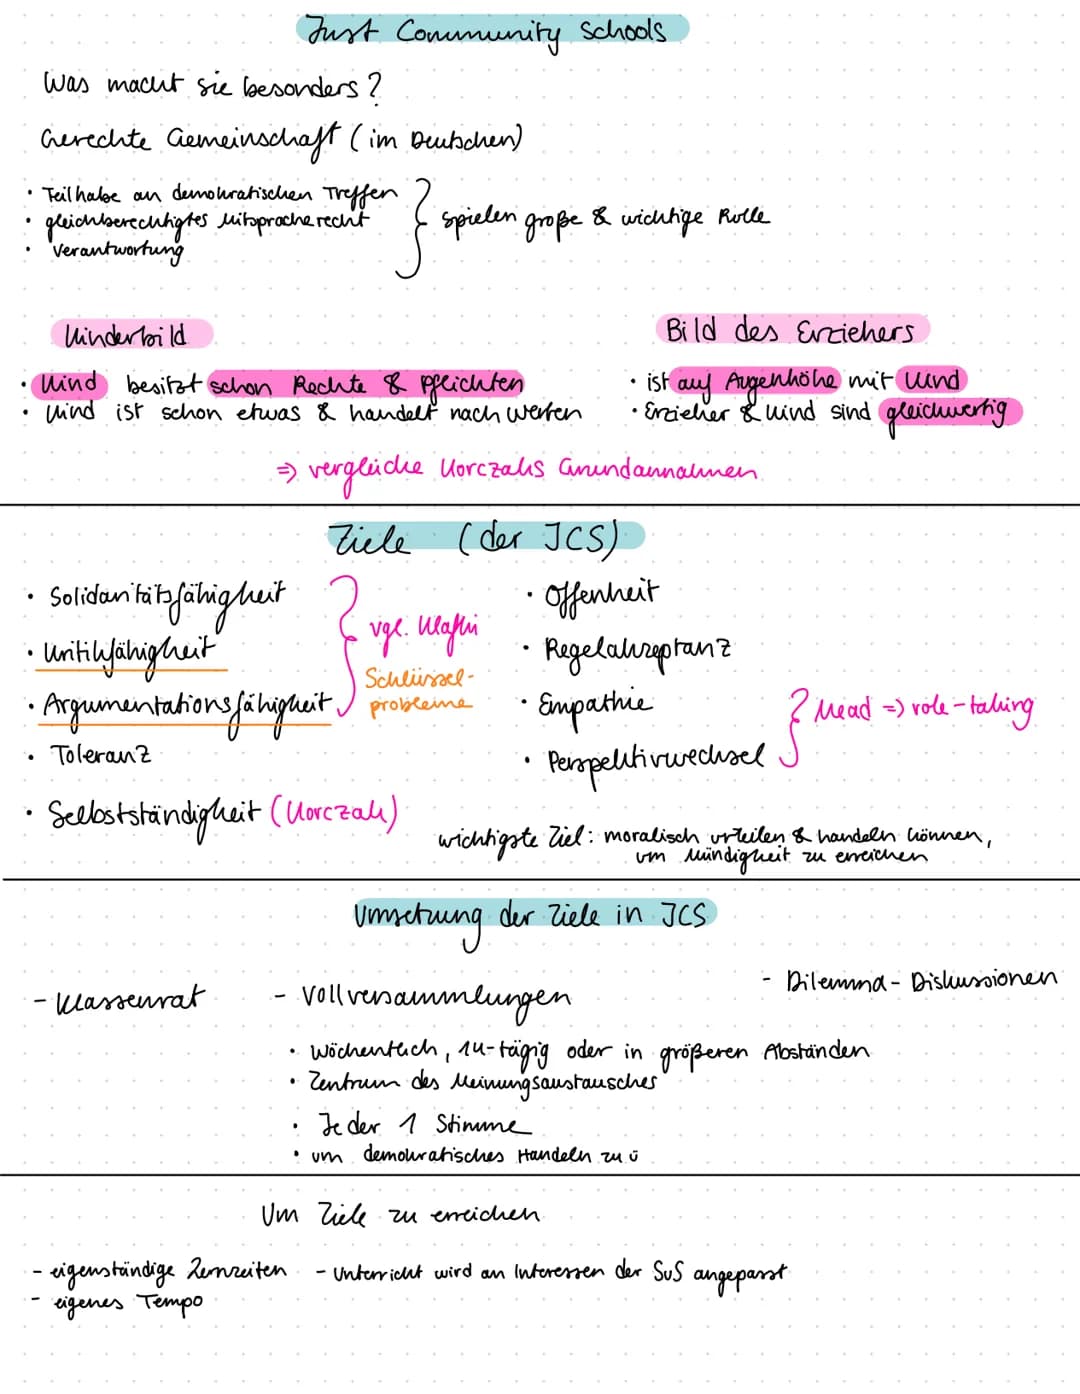 Just Community Schools
Was macht sie besonders?
Gerechte Gemeinschaft (im Deutschen)
• Teilhabe an demokratischen Treffen
• gleichberechtigtes Mitspracherecht
• Verantwortung
} spielen große & wichtige Rolle
Kinderbild
• Kind besitzt schon Rechte & Pflichten
• Kind ist schon etwas & handelt nach Werten
Bild des Erziehers
• ist auf Augenhöhe mit Kind
• Erzieher & Kind sind gleichwertig
=> vergleiche Korczaks Grundannahmen
Ziele (der JCS)
• Solidaritätsfähigheit
• Kritikfähigkeit
• Argumentationsfähigkeit
} vgl. Klafki
Schlüssel-
probleme
• Toleranz
• Selbstständigkeit (Korczak)
• Offenheit
• Regelakzeptanz
• Empathie
• Perspektivwechsel
} Mead => role-taking
wichtigste Ziel: moralisch urteilen & handeln können,
um Mündigkeit zu erreichen
Umsetzung der Ziele in JCS
- Klassenrat
- Vollversammlungen
- Dilemma-Diskussionen
• wöchentlich, 14-tägig oder in größeren Abständen
• Zentrum des Meinungsaustausches
• Jeder 1 Stimme
• um demokratisches Handeln zu ü
Um Ziele zu erreichen
- eigenständige Lernzeiten
- Unterricht wird an Interessen der SuS angepasst
- eigenes Tempo